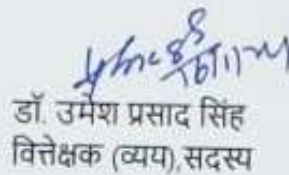 डॉ. उमेश प्रसाद सिंह
वित्तेक्षक (व्यय),सदस्य